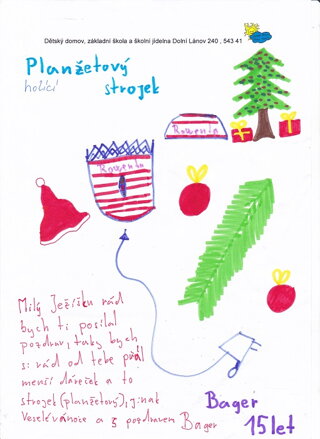 Dětský domov, základní škola a školní jídelna Dolní Lánov 240 , 543 41
Planžetový
holící strojek
Rowenta
Rowenta
Milý Ježíšku rád
bych ti posílal
pozdrav, taky bych
si rád od tebe přál
menší dáreček a to
strojek (planžetový), jinak
veselé vánoce a s pozdravem Bager
Bager
15 let